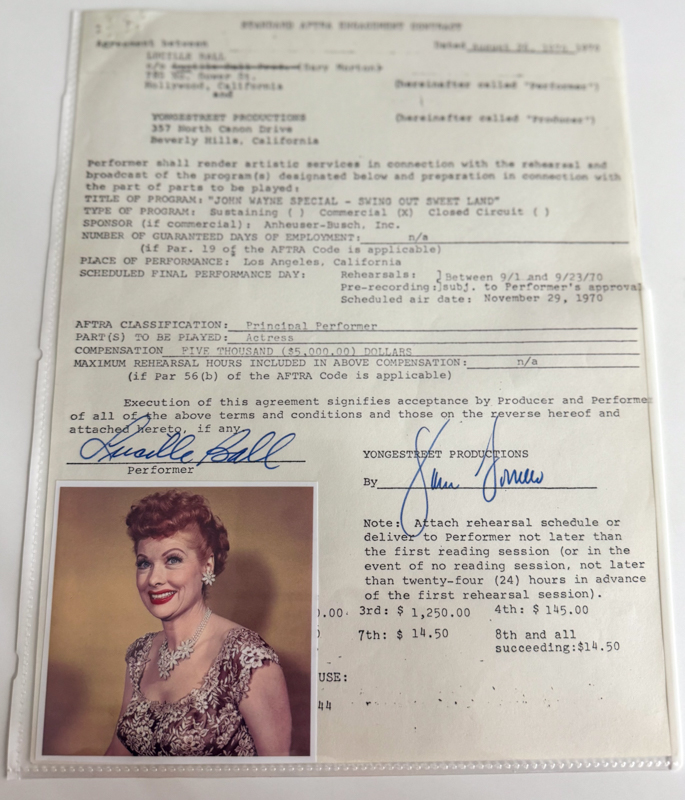 STANDARD AFTRA ENGAGEMENT CONTRACT
Agreement between Dated August 26, 1970 1970
LUCILLE BALL
c/o (Gary Morton)
780 No. Gower St.
Hollywood, California (hereinafter called "Performer")
and
YONGESTREET PRODUCTIONS (hereinafter called "Producer")
357 North Canon Drive
Beverly Hills, California
Performer shall render artistic services in connection with the rehearsal and
broadcast of the program(s) designated below and preparation in connection with
the part of parts to be played:
TITLE OF PROGRAM: "JOHN WAYNE SPECIAL - SWING OUT SWEET LAND"
TYPE OF PROGRAM: Sustaining ( ) Commercial (X) Closed Circuit ( )
SPONSOR (if commercial): Anheuser-Busch, Inc.
NUMBER OF GUARANTEED DAYS OF EMPLOYMENT: n/a
(if Par. 19 of the AFTRA Code is applicable)
PLACE OF PERFORMANCE: Los Angeles, California
SCHEDULED FINAL PERFORMANCE DAY: Rehearsals: ]Between 9/1 and 9/23/70
Pre-recording:]subj. to Performer's approval
Scheduled air date: November 29, 1970
AFTRA CLASSIFICATION: Principal Performer
PART(S) TO BE PLAYED: Actress
COMPENSATION FIVE THOUSAND ($5,000.00) DOLLARS
MAXIMUM REHEARSAL HOURS INCLUDED IN ABOVE COMPENSATION: n/a
(if Par 56(b) of the AFTRA Code is applicable)
Execution of this agreement signifies acceptance by Producer and Performe
of all of the above terms and conditions and those on the reverse hereof and
attached hereto, if any.
Lucille Ball
Performer
YONGESTREET PRODUCTIONS
By
Note: Attach rehearsal schedule or
deliver to Performer not later than
the first reading session (or in the
event of no reading session, not later
than twenty-four (24) hours in advance
of the first rehearsal session).
.00. 3rd: $ 1,250.00 4th: $ 145.00
7th: $ 14.50 8th and all
succeeding:$14.50
USE:
44